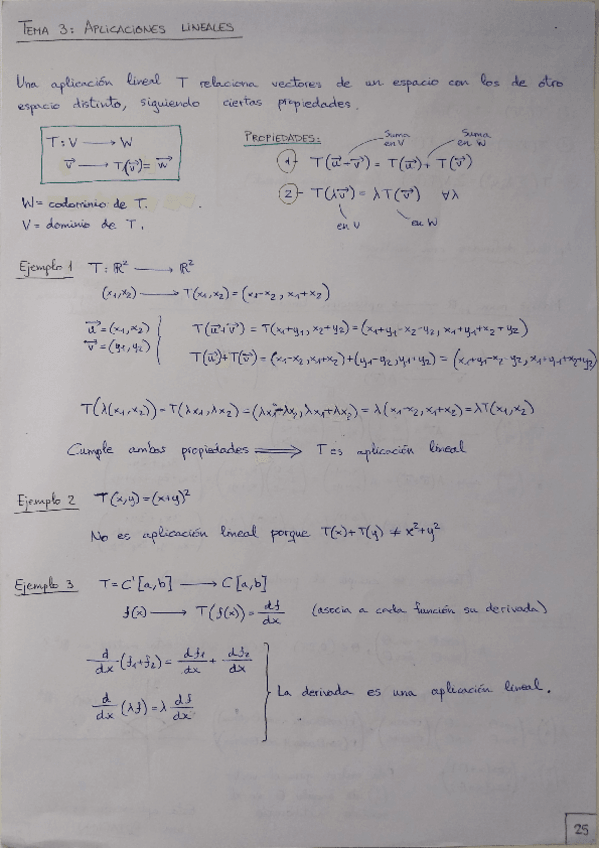 TEMA 3: APLICACIONES LINEALES
Una aplicación lineal T relaciona vectores de un espacio con los de otro
espacio distinto, siguiendo ciertas propiedades.
T: V → W
v⃗ → T(v⃗) = w⃗
W = codominio de T.
V = dominio de T.
PROPIEDADES:
Suma en V
Suma en W
1- T(u⃗+v⃗) = T(u⃗) + T(v⃗)
2- T(λv⃗) = λT(v⃗) ∀λ
en V
en W
Ejemplo 1 T: R² → R²
(x₁,x₂) → T(x₁,x₂) = (x₁-x₂, x₁+x₂)
u⃗ = (x₁,x₂)
v⃗ = (y₁,y₂)
T(u⃗+v⃗) = T(x₁+y₁, x₂+y₂) = (x₁+y₁-x₂-y₂, x₁+y₁+x₂+y₂)
T(u⃗)+T(v⃗) = (x₁-x₂, x₁+x₂) + (y₁-y₂, y₁+y₂) = (x₁+y₁-x₂-y₂, x₁+y₁+x₂+y₂)
T(λ(x₁,x₂)) = T(λx₁, λx₂) = (λx₁-λx₂, λx₁+λx₂) = λ(x₁-x₂, x₁+x₂) = λT(x₁,x₂)
Cumple ambas propiedades ⟹ T es aplicación lineal
Ejemplo 2 T(x,y) = (x+y)²
No es aplicación lineal porque T(x)+T(y) ≠ x²+y²
Ejemplo 3 T = C'[a,b] → C[a,b]
f(x) → T(f(x)) = df/dx (asocia a cada función su derivada)
d/dx · (f₁+f₂) = df₁/dx + df₂/dx
d/dx (λf) = λ df/dx
La derivada es una aplicación lineal.
25